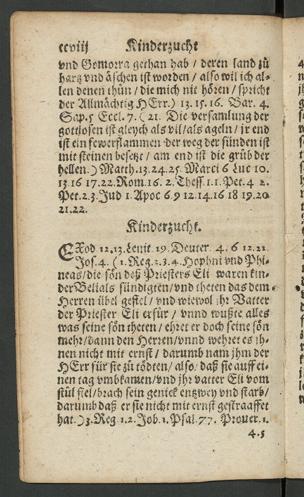 ccviij Kinderzucht
vnd Gomorra gethan hab / deren land zů
hartz vnd äschen ist worden / also wil ich al-
len denen thůn / die mich nit hören / spricht
der Allmächtig HErr.) 13.15.16. Bar. 4.
Sap.5 Eccl. 7. (21. Die versamlung der
gottlosen ist gleych als vil / als ageln / jr end
ist ein fewerflammen der weg der sünden ist
mit steinen besetz / am end ist die grůb der
hellen.) Matth.13.24.25. Marci 6 Luc 10.
13.16 17.22. Rom.16. 2. Thess.1.1. Pet.4 2.
Pet.2.3. Jud 1. Apoc 6 9 12.14.16 18 19.20
21.22.
Kinderzucht.
EXod 12.13. Leuit. 19. Deuter. 4. 6 12.21.
Jos.4. (1. Reg.2.3.4. Hophni vnd Phi-
neas / die sön deß Priesters Eli waren kin-
der Belials sündigten / vnd theten das dem
Herren übel gefiel / vnd wiewol jhr Vatter
der Priester Eli erfůr / vnnd wußte alles
was seine sön theten / ehret er doch seine sön
mehr / dann den Herren / vnnd wehret es jh-
nen nicht mit ernst / darumb nam jhm der
HErr für sie zů tödten / also / daß sie auff ei-
nen tag vmbkamen / vnd jhr vatter Eli vom
stůl fiel / brach sein genick entzwey vnd starb /
darumb daß er sie nicht mit ernst gestraaffet
hat.) 3. Reg 1.2. Job.1. Psal.77. Prouer.1.
4.5